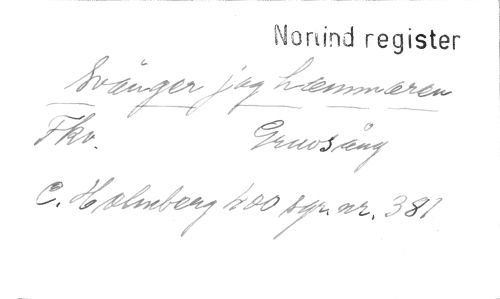 Norrind register
Svänger jag hammaren
Fkv. Gruvsång
C. Holmberg 400 sgr. nr. 381